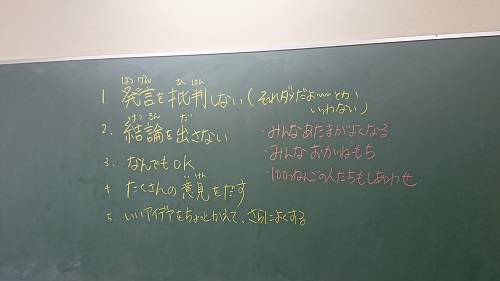 はつげん ひはん
1. 発言を批判しない(それダメだよ〜〜とか
いわない)
けつろん だ
2. 結論を出さない
3. なんでもOK
いけん
4. たくさんの意見をだす
5. いいアイデアをちょっとかえて、さらによくする
・みんなあたまがよくなる
・みんなおかねもち
・100ねんごの人たちもしあわせ